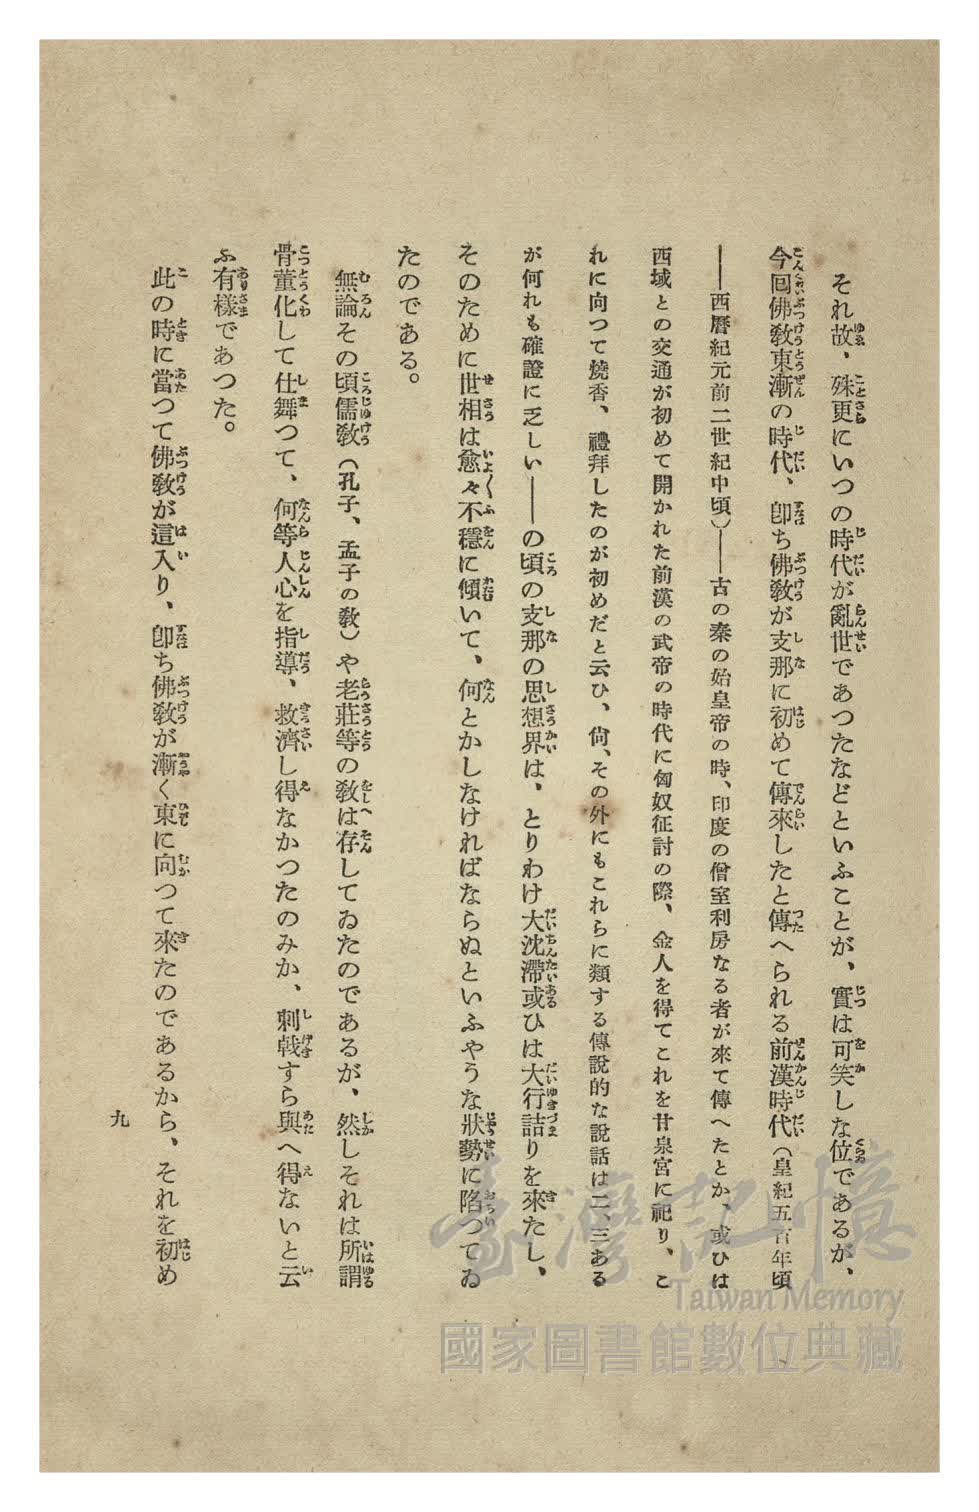 それ故、殊更にいつの時代が亂世であつたなどといふことが、實は可笑しな位であるが、
今回佛敎東漸の時代、卽ち佛敎が支那に初めて傳來したと傳へられる前漢時代（皇紀五百年頃
――西曆紀元前二世紀中頃）――古の秦の始皇帝の時、印度の僧室利房なる者が來て傳へたとか、或ひは
西域との交通が初めて開かれた前漢の武帝の時代に匈奴征討の際、金人を得てこれを甘泉宮に祀り、こ
れに向つて燒香、禮拜したのが初めだと云ひ、尙、その外にもこれらに類する傳說的な說話は二、三ある
が何れも確證に乏しい――の頃の支那の思想界は、とりわけ大沈滯或ひは大行詰りを來たし、
そのために世相は愈々不穩に傾いて、何とかしなければならぬといふやうな狀勢に陷つてゐ
たのである。
無論その頃儒敎（孔子、孟子の敎）や老莊等の敎は存してゐたのであるが、然しそれは所謂
骨董化して仕舞つて、何等人心を指導、救濟し得なかつたのみか、刺戟すら與へ得ないと云
ふ有樣であつた。
此の時に當つて佛敎が這入り、卽ち佛敎が漸く東に向つて來たのであるから、それを初め
九
臺灣記憶
Taiwan Memory
國家圖書館數位典藏